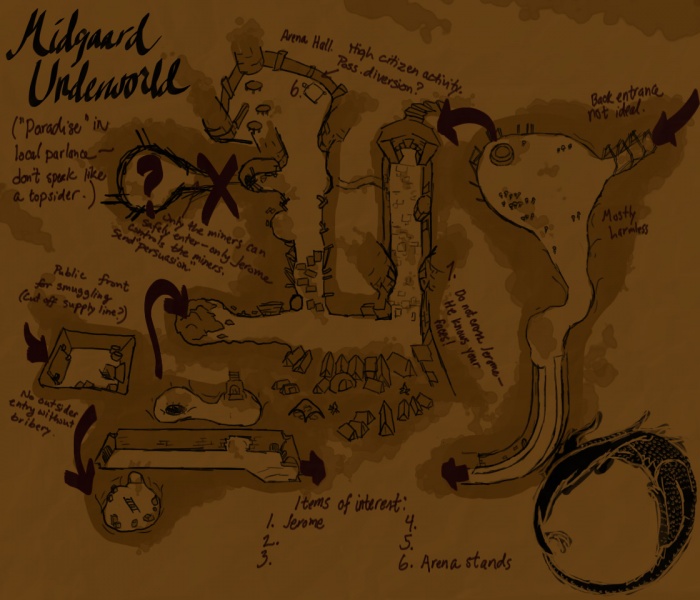 Midgaard
Underworld
("Paradise" in
local parlance —
don't speak like
a topsider.)
Arena Hall. High citizen activity.
Poss. diversion?
6.
Back entrance
not ideal.
?
Only the miners can
safely enter — only Jerome
controls the miners.
Send "persuasion"
Mostly
harmless
Public front
for smuggling
(Cut off supply line?)
1.
Do not cross Jerome —
He knows your
faces!
No outsider
entry without
bribery.
Items of interest:
1. Jerome
2.
3.
4.
5.
6. Arena stands